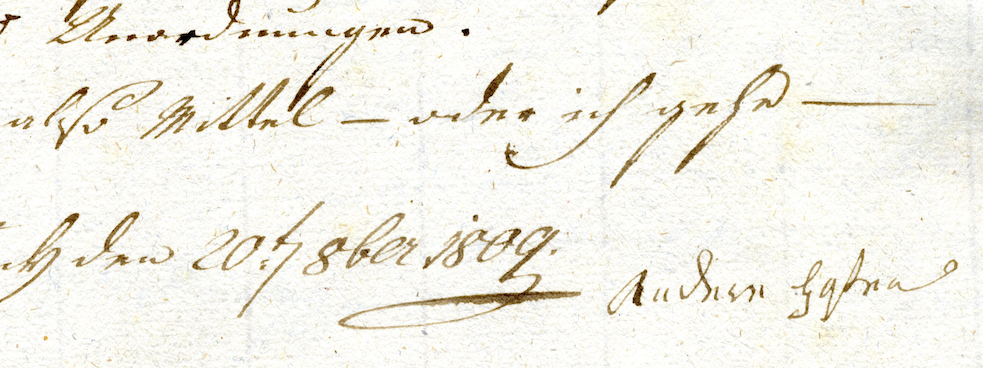 Unordnungen.
also Mittel — oder ich gehe —
den 20t 8ber 1809.
Andere Hofer